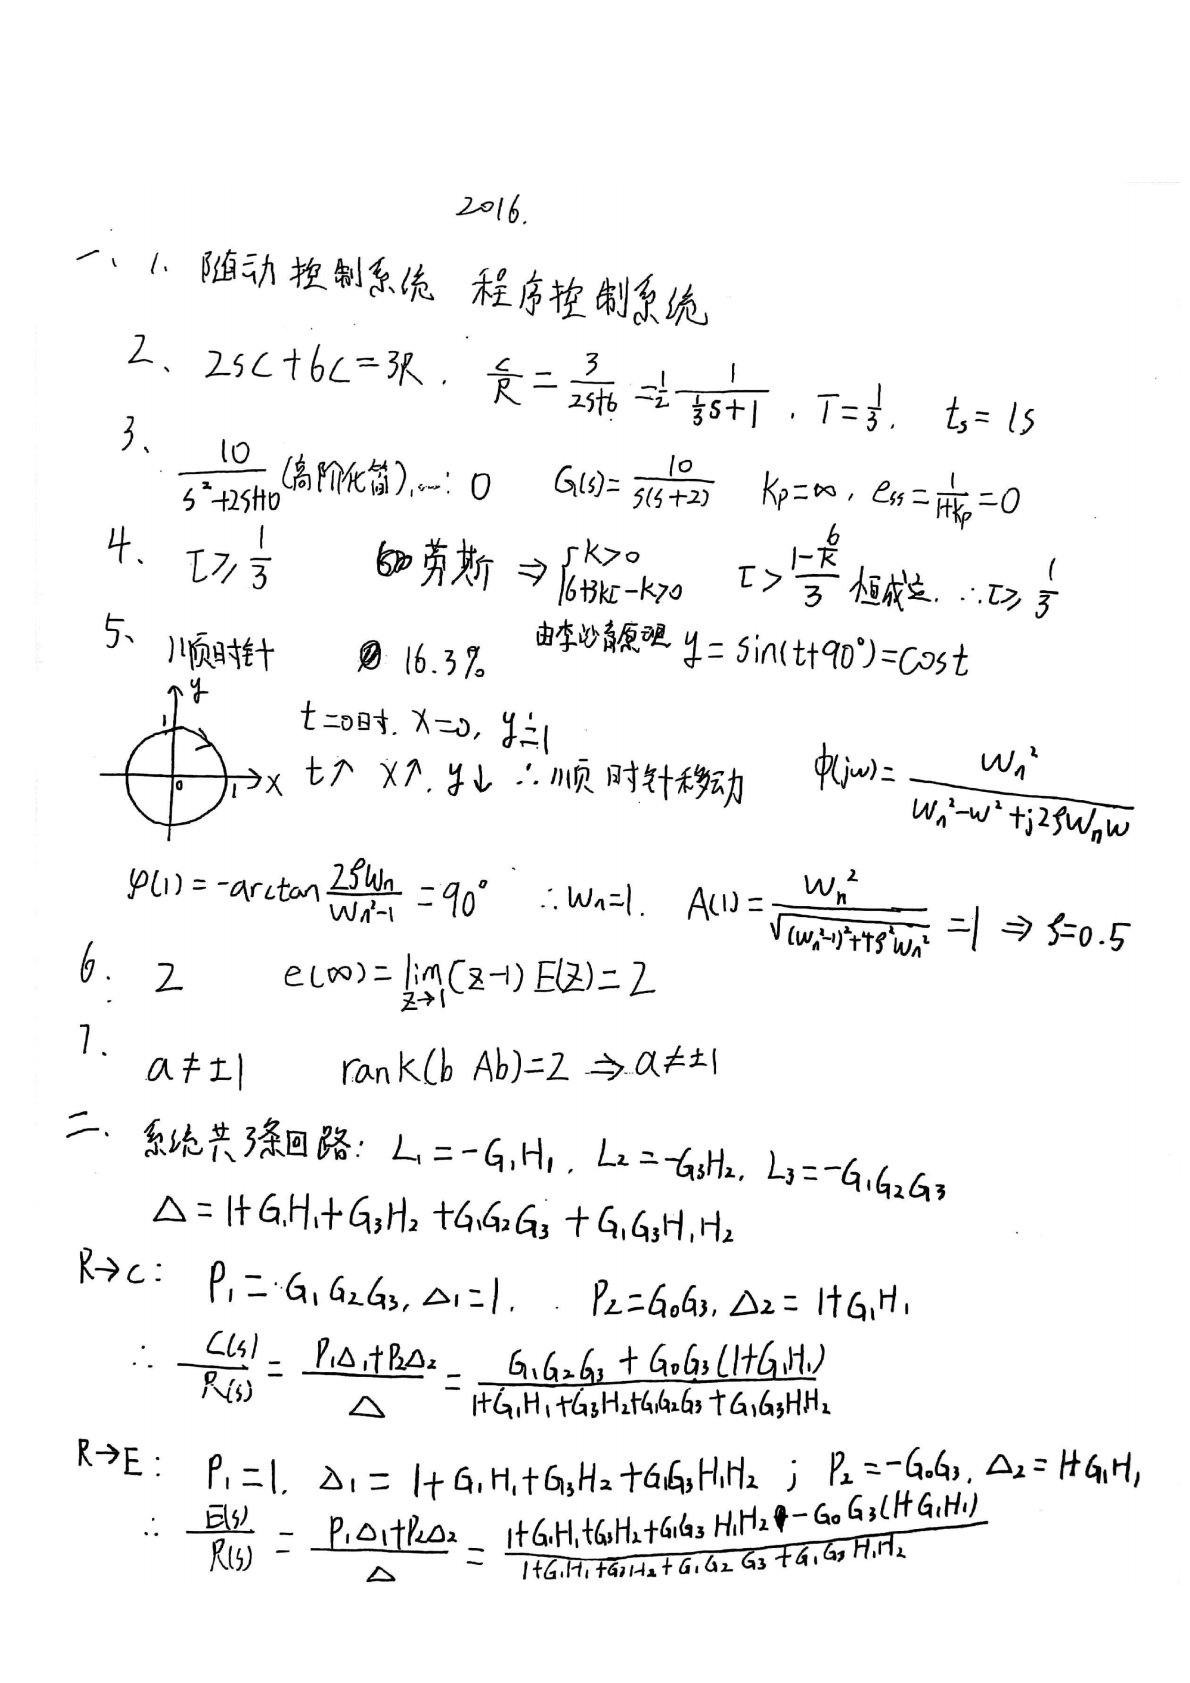 2016.
一、1. 随动控制系统 程序控制系统
2、 2sC+6C=3R. C/R = 3/(2s+6) = 1/2 · 1/(1/3 s+1), T=1/3, ts=1s
3、 10/(s²+2s+10) (高阶化简),…: 0 G(s)=10/(s(s+2)) Kp=∞, ess=1/(1+Kp)=0
4、 τ≥1/3 劳斯 ⇒ {K>0 6+3Kτ-K>0 τ>(1-6/K)/3 恒成立. ∴τ≥1/3
5、 顺时针 16.3% 由李沙育原理 y=sin(t+90°)=cost
y 1 0 1 x
t=0时. x=0, y=1
t↑ x↑. y↓ ∴顺时针移动 Φ(jω)= ωn²/(ωn²-ω²+j2ζωnω)
φ(1)=-arctan 2ζωn/(ωn²-1) = 90° ∴ωn=1. A(1)= ωn²/√((ωn²-1)²+4ζ²ωn²) =1 ⇒ ζ=0.5
6. 2 e(∞)=lim z→1 (z-1)E(z)=2
7. a≠±1 rank(b Ab)=2 ⇒ a≠±1
二、 系统共3条回路: L₁=-G₁H₁, L₂=-G₃H₂, L₃=-G₁G₂G₃
Δ=1+G₁H₁+G₃H₂+G₁G₂G₃+G₁G₃H₁H₂
R→C: P₁=G₁G₂G₃, Δ₁=1. P₂=G₀G₃, Δ₂=1+G₁H₁
∴ C(s)/R(s) = (P₁Δ₁+P₂Δ₂)/Δ = (G₁G₂G₃+G₀G₃(1+G₁H₁))/(1+G₁H₁+G₃H₂+G₁G₂G₃+G₁G₃H₁H₂)
R→E: P₁=1. Δ₁=1+G₁H₁+G₃H₂+G₁G₃H₁H₂ ; P₂=-G₀G₃, Δ₂=1+G₁H₁
∴ E(s)/R(s) = (P₁Δ₁+P₂Δ₂)/Δ = (1+G₁H₁+G₃H₂+G₁G₃H₁H₂-G₀G₃(1+G₁H₁))/(1+G₁H₁+G₃H₂+G₁G₂G₃+G₁G₃H₁H₂)